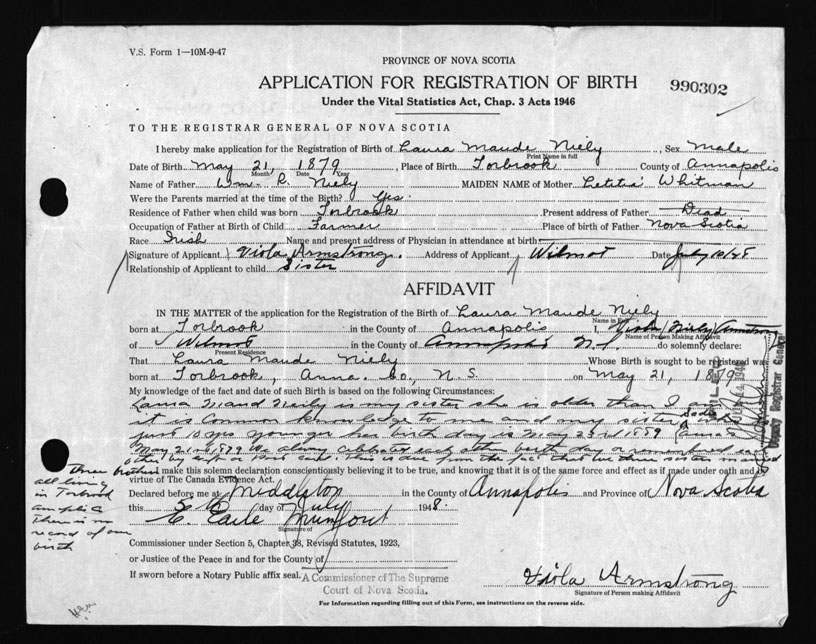 V.S. Form 1—10M-9-47
PROVINCE OF NOVA SCOTIA
APPLICATION FOR REGISTRATION OF BIRTH
990302
Under the Vital Statistics Act, Chap. 3 Acts 1946
TO THE REGISTRAR GENERAL OF NOVA SCOTIA
I hereby make application for the Registration of Birth of Laura Maude Niely, Sex Male
Print Name in full
Date of Birth May 21, 1879, Place of Birth Torbrook County of Annapolis
Month Date Year
Name of Father Wm. R. Niely MAIDEN NAME of Mother Letitia Whitman
Were the Parents married at the time of Birth? Yes.
Residence of Father when child was born Torbrook Present address of Father Dead
Occupation of Father at Birth of Child Farmer Place of birth of Father Nova Scotia
Race Irish Name and present address of Physician in attendance at birth
Signature of Applicant Viola Armstrong. Address of Applicant Wilmot Date July
Relationship of Applicant to child Sister
AFFIDAVIT
IN THE MATTER of the application for the Registration of the Birth of Laura Maude Niely
Name in Full
born at Torbrook in the County of Annapolis I, Viola Niely Armstrong
Name of Person Making Affidavit
of Wilmot in the County of Annapolis N.S do solemnly declare:
Present Residence
That Laura Maude Niely Whose Birth is sought to be registered was
born at Torbrook, Anna. Co., N. S. on May 21, 1879
My knowledge of the fact and date of such Birth is based on the following Circumstances:
Laura Maud Neily is my sister she is older than I am
it is common knowledge to me and my sister
just yrs younger her birth day is May 23rd
May 21st 1879 We
Three brothers make this solemn declaration conscientiously believing it to be true, and knowing that it is of the same force and effect as if made under oath and by
all living virtue of The Canada Evidence Act.
in Torbrook
There is no
record of our
birth
Declared before me at Middleton in the County of Annapolis and Province of Nova Scotia
this day of July 1948.
E. Earle Mumford
Signature of
Commissioner under Section 5, Chapter 38, Revised Statutes, 1923,
or Justice of the Peace in and for the County of
If sworn before a Notary Public affix seal.
A Commissioner of The Supreme
Court of Nova Scotia.
Viola Armstrong
Signature of Person making Affidavit
For Information regarding filling out of this Form, see instructions on the reverse side.
Deputy Registrar General